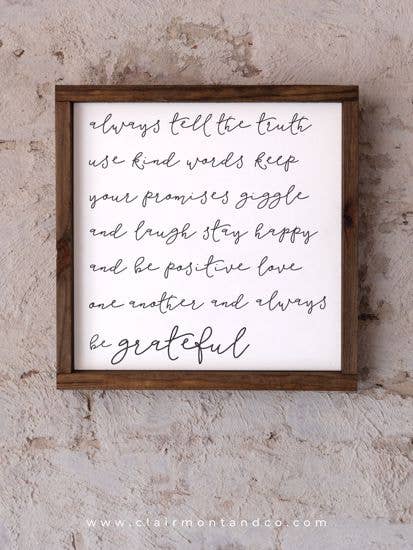 always tell the truth
use kind words keep
your promises giggle
and laugh stay happy
and be positive love
one another and always
be grateful
www.clairmontandco.com